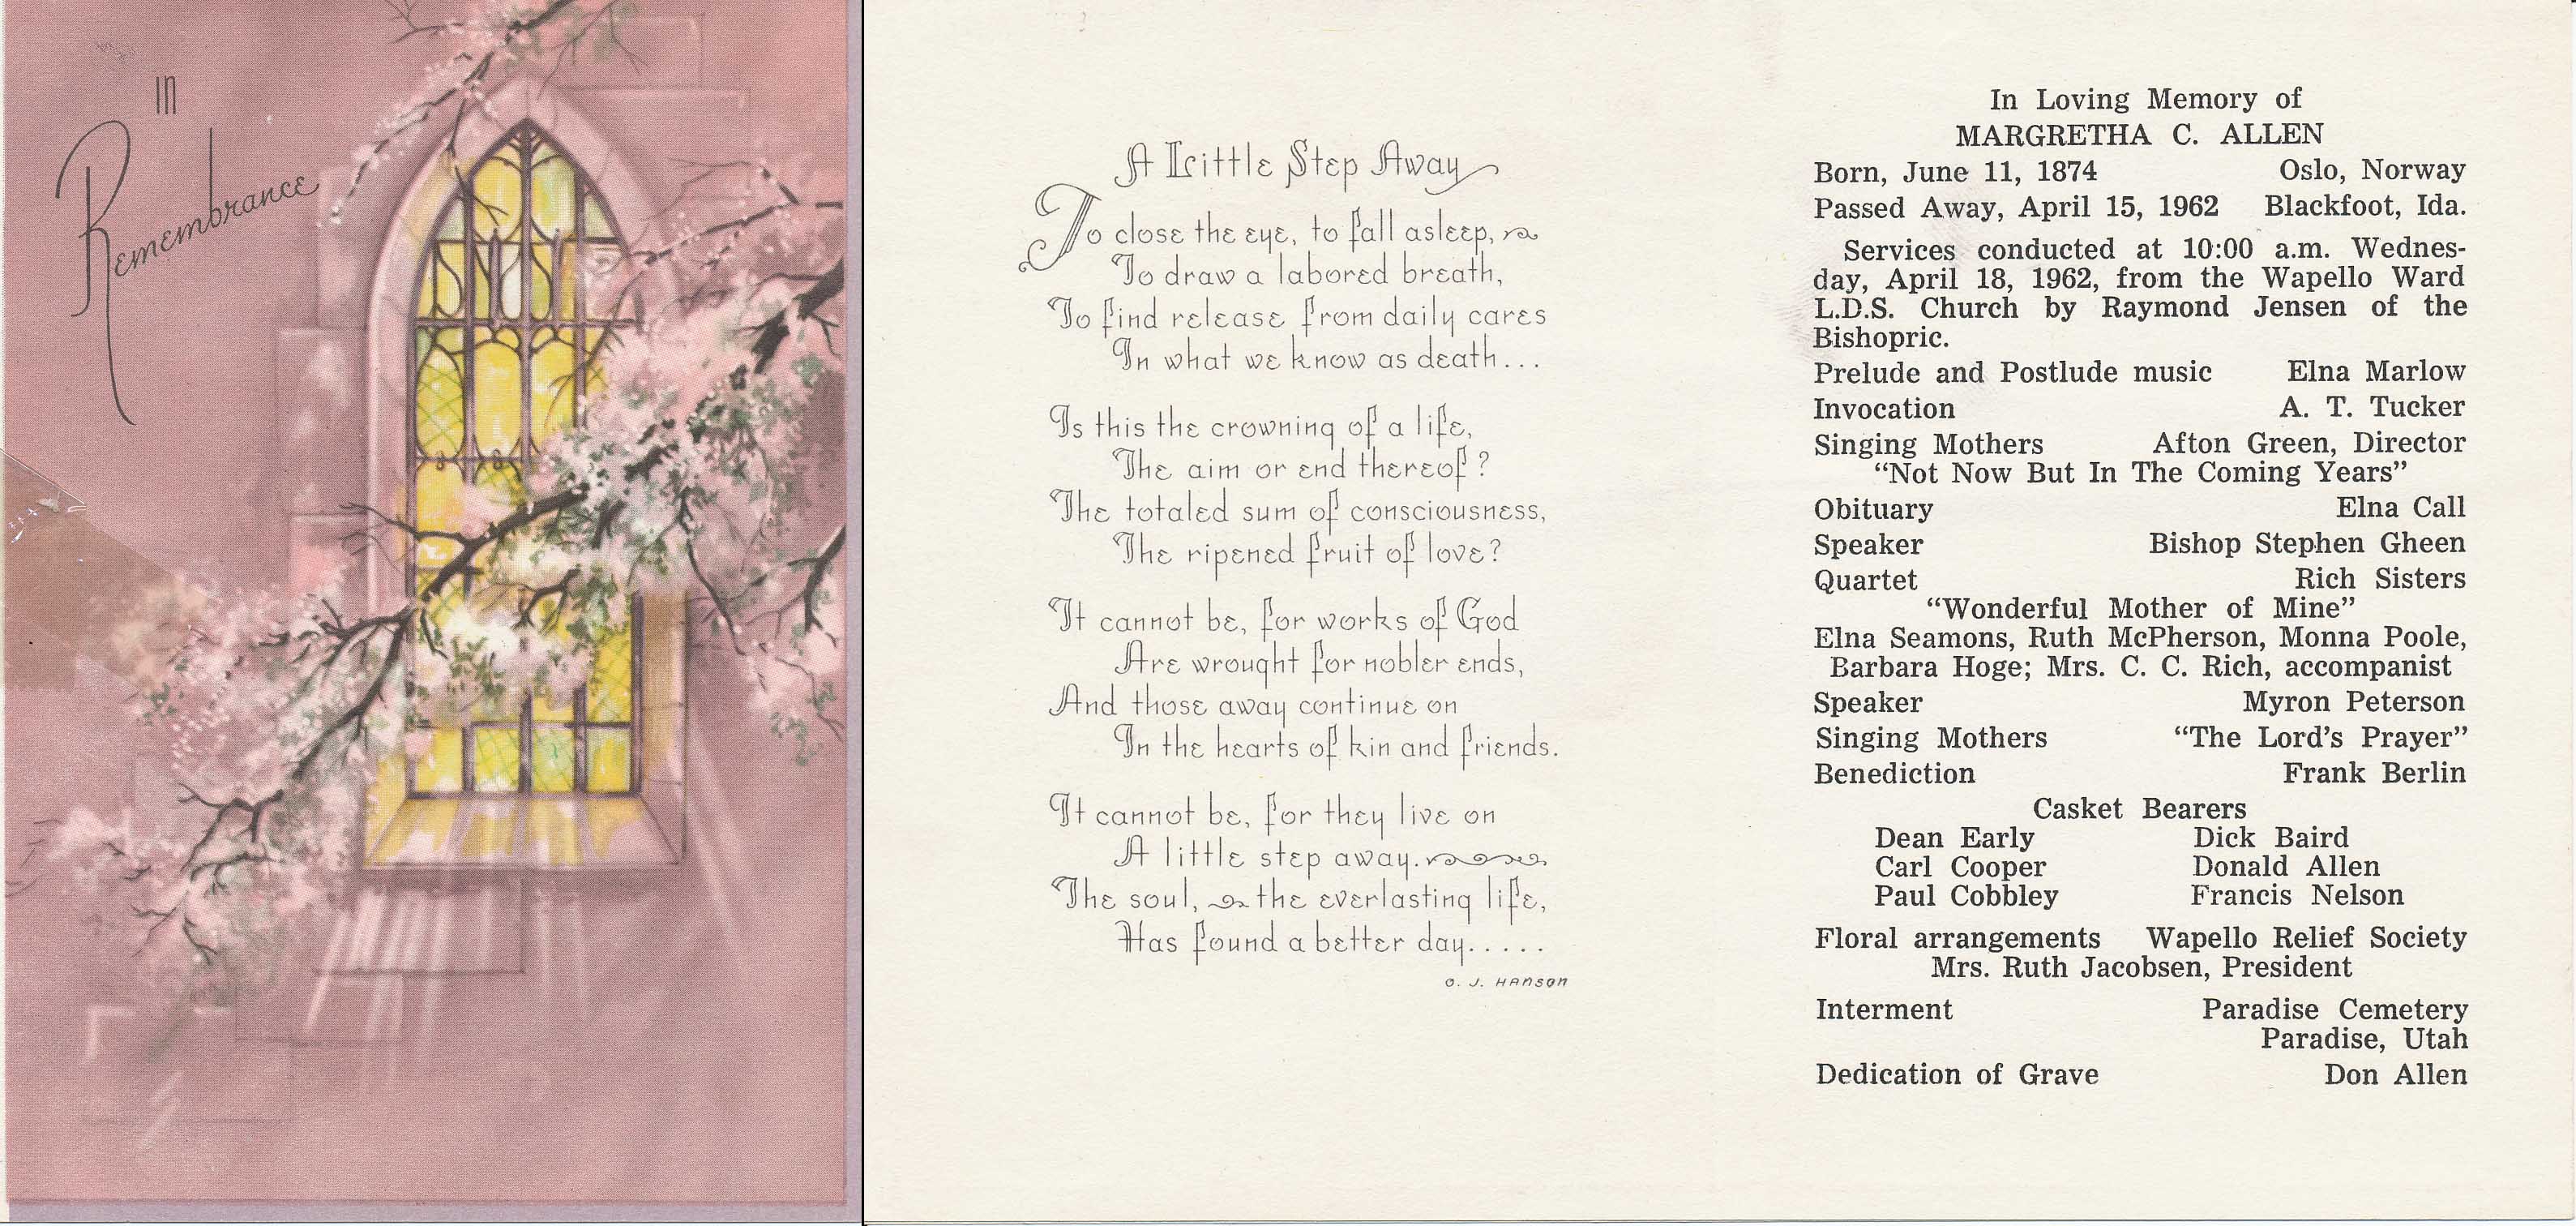 In
Remembrance
A Little Step Away
To close the eye, to fall asleep,
To draw a labored breath,
To find release from daily cares
In what we know as death...
Is this the crowning of a life,
The aim or end thereof?
The totaled sum of consciousness,
The ripened fruit of love?
It cannot be, for works of God
Are wrought for nobler ends,
And those away continue on
In the hearts of kin and friends.
It cannot be, for they live on
A little step away.
The soul, the everlasting life,
Has found a better day.....
O. J. HANSON
In Loving Memory of
MARGRETHA C. ALLEN
Born, June 11, 1874 Oslo, Norway
Passed Away, April 15, 1962 Blackfoot, Ida.
Services conducted at 10:00 a.m. Wednes-
day, April 18, 1962, from the Wapello Ward
L.D.S. Church by Raymond Jensen of the
Bishopric.
Prelude and Postlude music Elna Marlow
Invocation A. T. Tucker
Singing Mothers Afton Green, Director
“Not Now But In The Coming Years”
Obituary Elna Call
Speaker Bishop Stephen Gheen
Quartet Rich Sisters
“Wonderful Mother of Mine”
Elna Seamons, Ruth McPherson, Monna Poole,
Barbara Hoge; Mrs. C. C. Rich, accompanist
Speaker Myron Peterson
Singing Mothers “The Lord’s Prayer”
Benediction Frank Berlin
Casket Bearers
Dean Early Dick Baird
Carl Cooper Donald Allen
Paul Cobbley Francis Nelson
Floral arrangements Wapello Relief Society
Mrs. Ruth Jacobsen, President
Interment Paradise Cemetery
Paradise, Utah
Dedication of Grave Don Allen